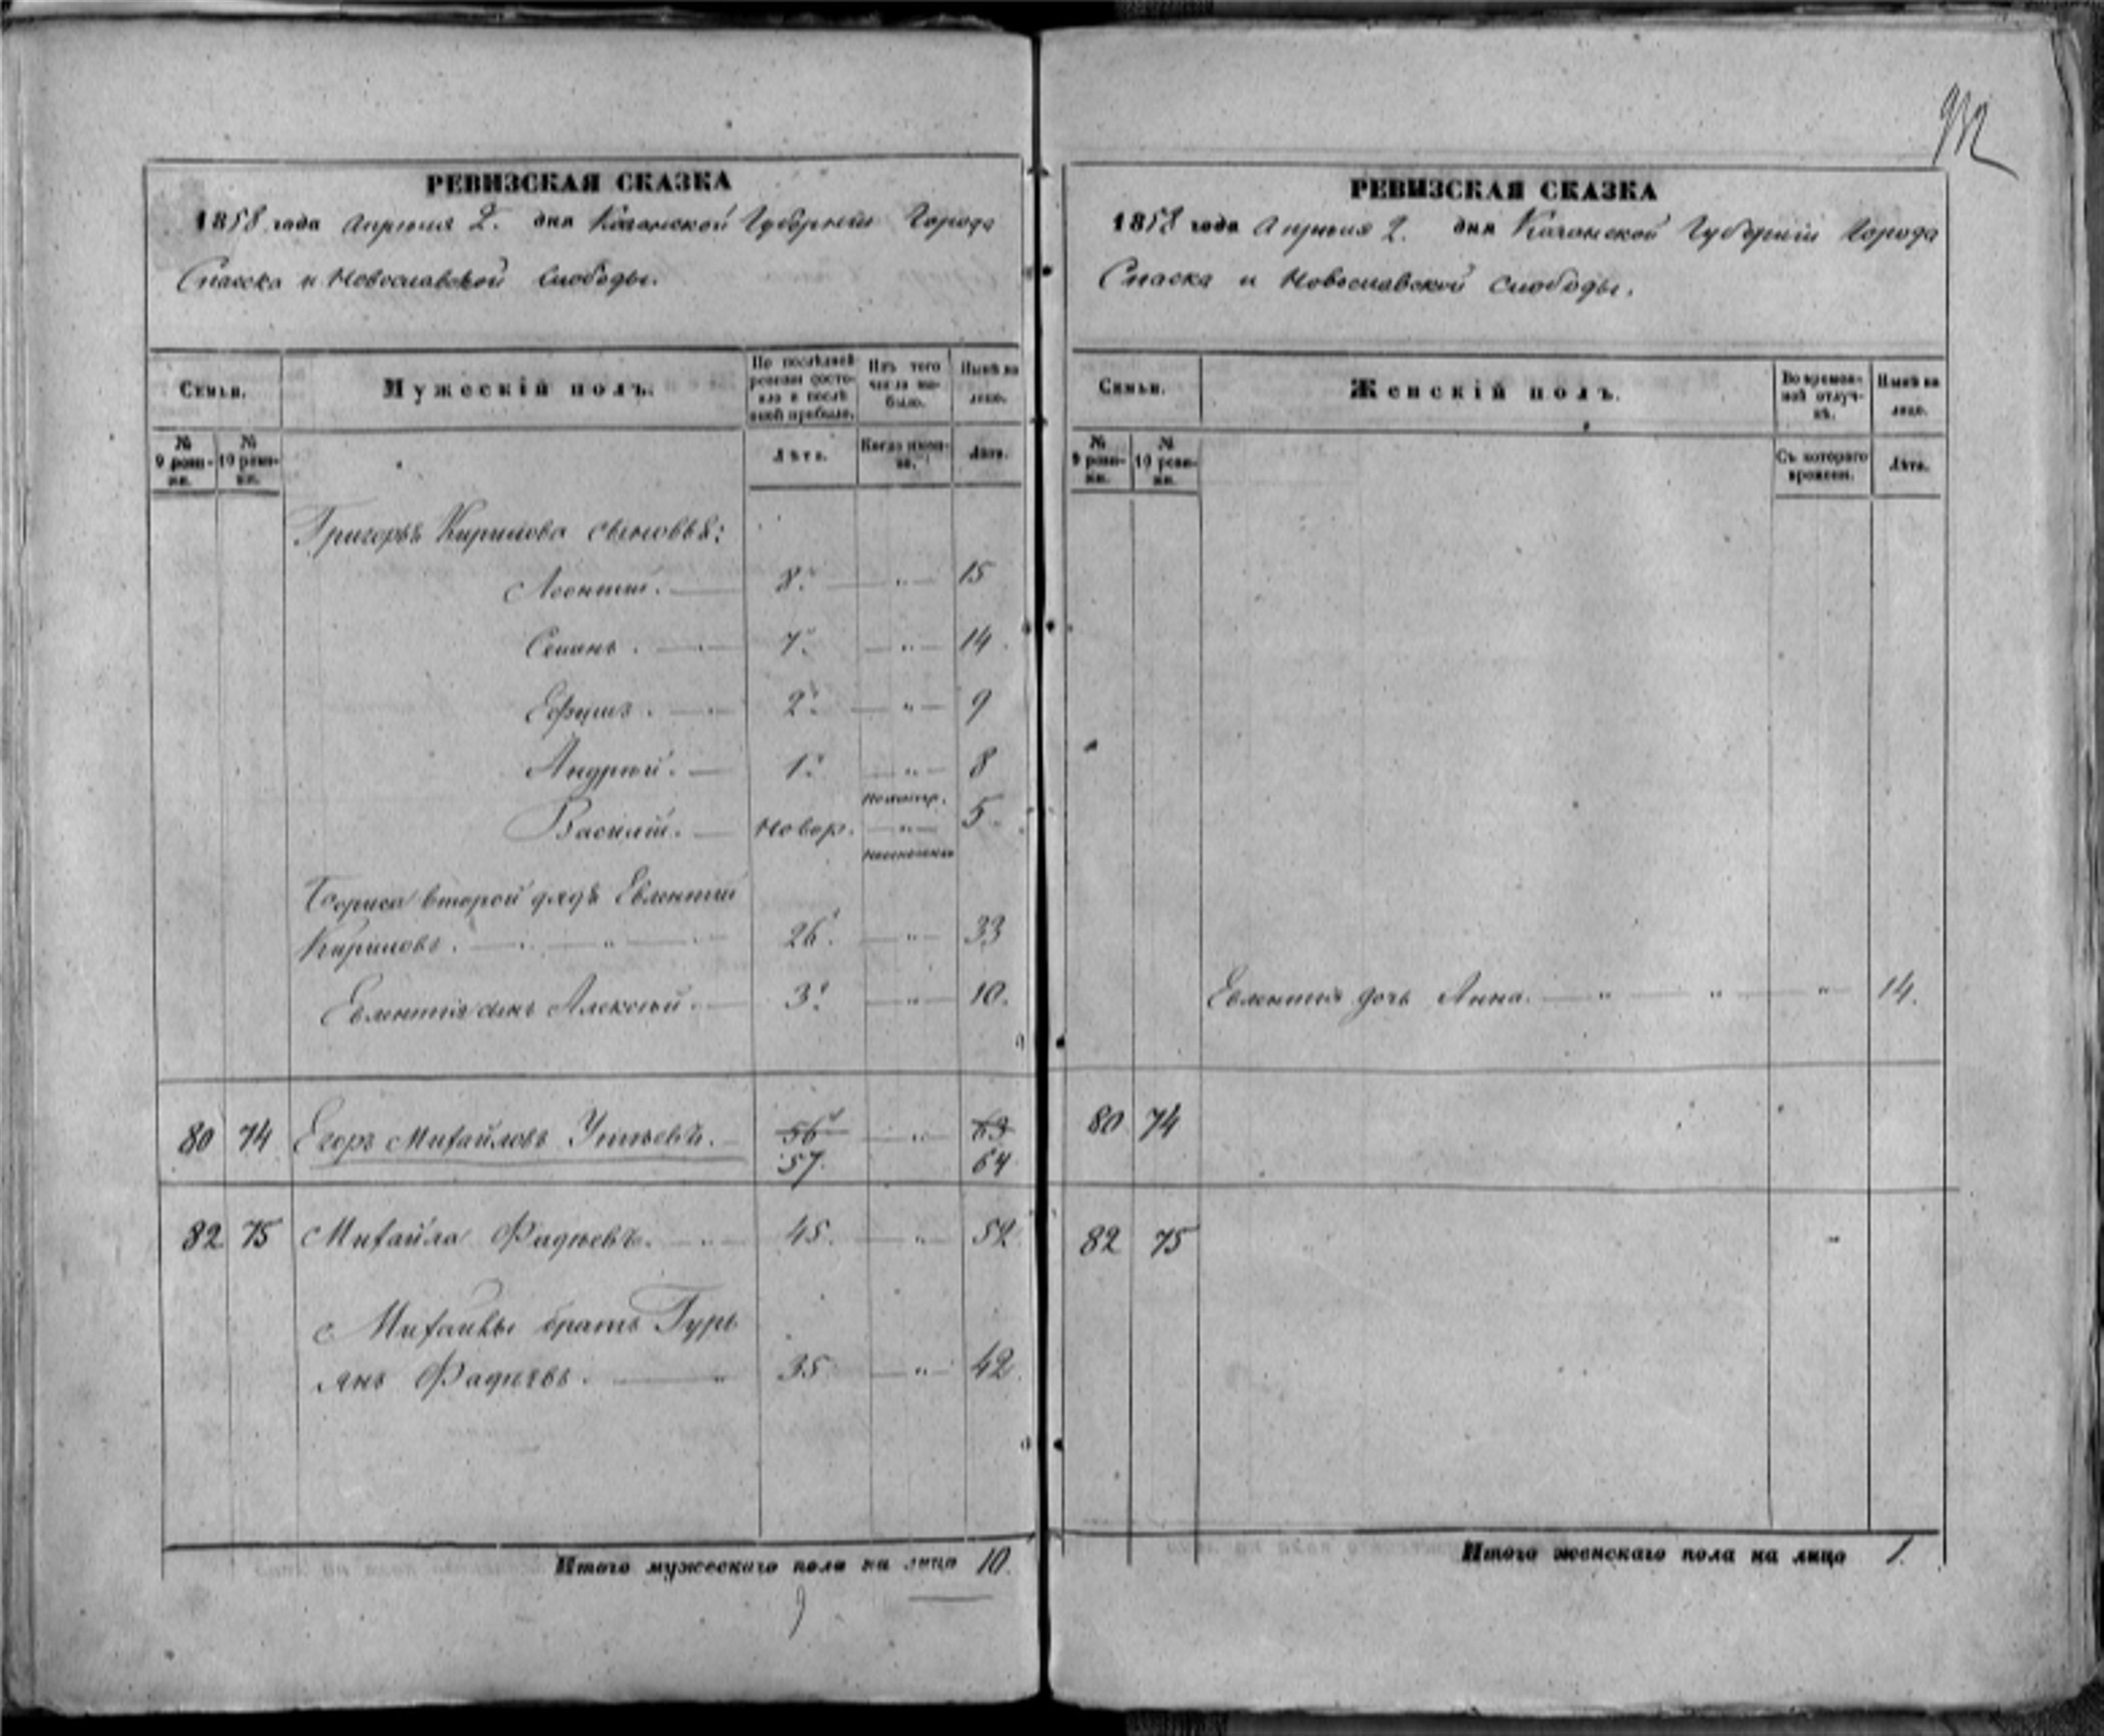 РЕВИЗСКАЯ СКАЗКА
1858 года Апреля 2. дня Казанской Губернии Города
Спасска и Новославской Слободы.
Семьи.
Мужескій полъ.
По послѣдней ревизіи состояло и послѣ оной прибыло.
Изъ того числа выбыло.
Нынѣ на лицо.
№ 9 ревизіи.
№ 10 ревизіи.
Лѣта.
Когда именно.
Лѣта.
Григорья Кирилова сыновья:
Леонтій. 8. " 15
Семенъ. 7. " 14
Ефимъ. 2. " 9
Андрей. 1. " 8
Василій. Новор. " 5
Бориса второй дядя Евлентій
Кириловъ. 26. " 33
Евлентія сынъ Алексѣй. 3. " 10.
80 74 Егоръ Михайловъ 56 " 63
57. 64
82 75 Михайла Фадѣевъ. 45. " 52
Михайлы братъ Гурь
янъ Фадѣевъ. 35 " 42
Итого мужескаго пола на лицо 10.
9
РЕВИЗСКАЯ СКАЗКА
1858 года Апреля 2. дня Казанской Губернии Города
Спаска и Новославской Слободы.
Семьи.
Женскій полъ.
Во временной отлучкѣ.
Нынѣ на лицо.
№ 9 ревизіи.
№ 10 ревизіи.
Съ котораго времени.
Лѣта.
Евлентія дочь Анна. " " " 14.
80 74
82 75
Итого женскаго пола на лицо 1.